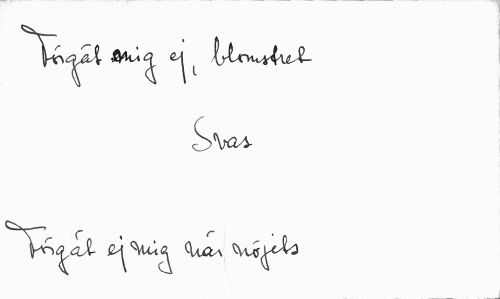 Förgät mig ej, blomstret
Svas
Förgät ej mig när nöjets